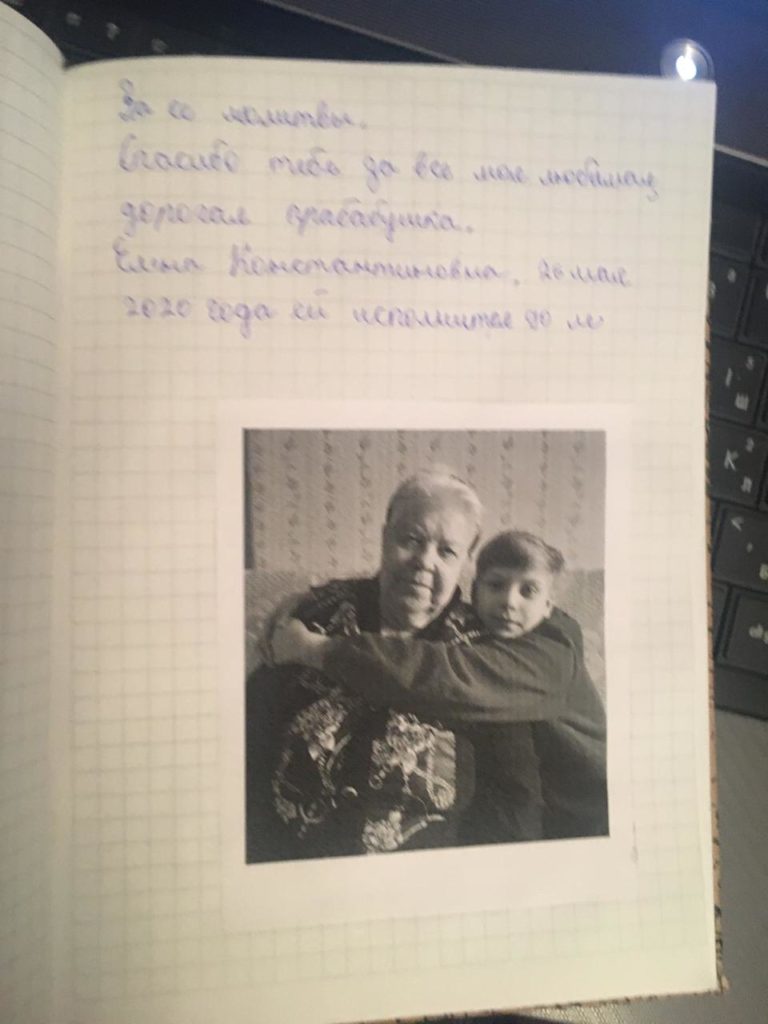 За ее молитвы.
Спасибо тебе за все моя любимая,
дорогая прабабушка.
Елена Константиновна. 26 мая
2020 года ей исполнится 80 ле